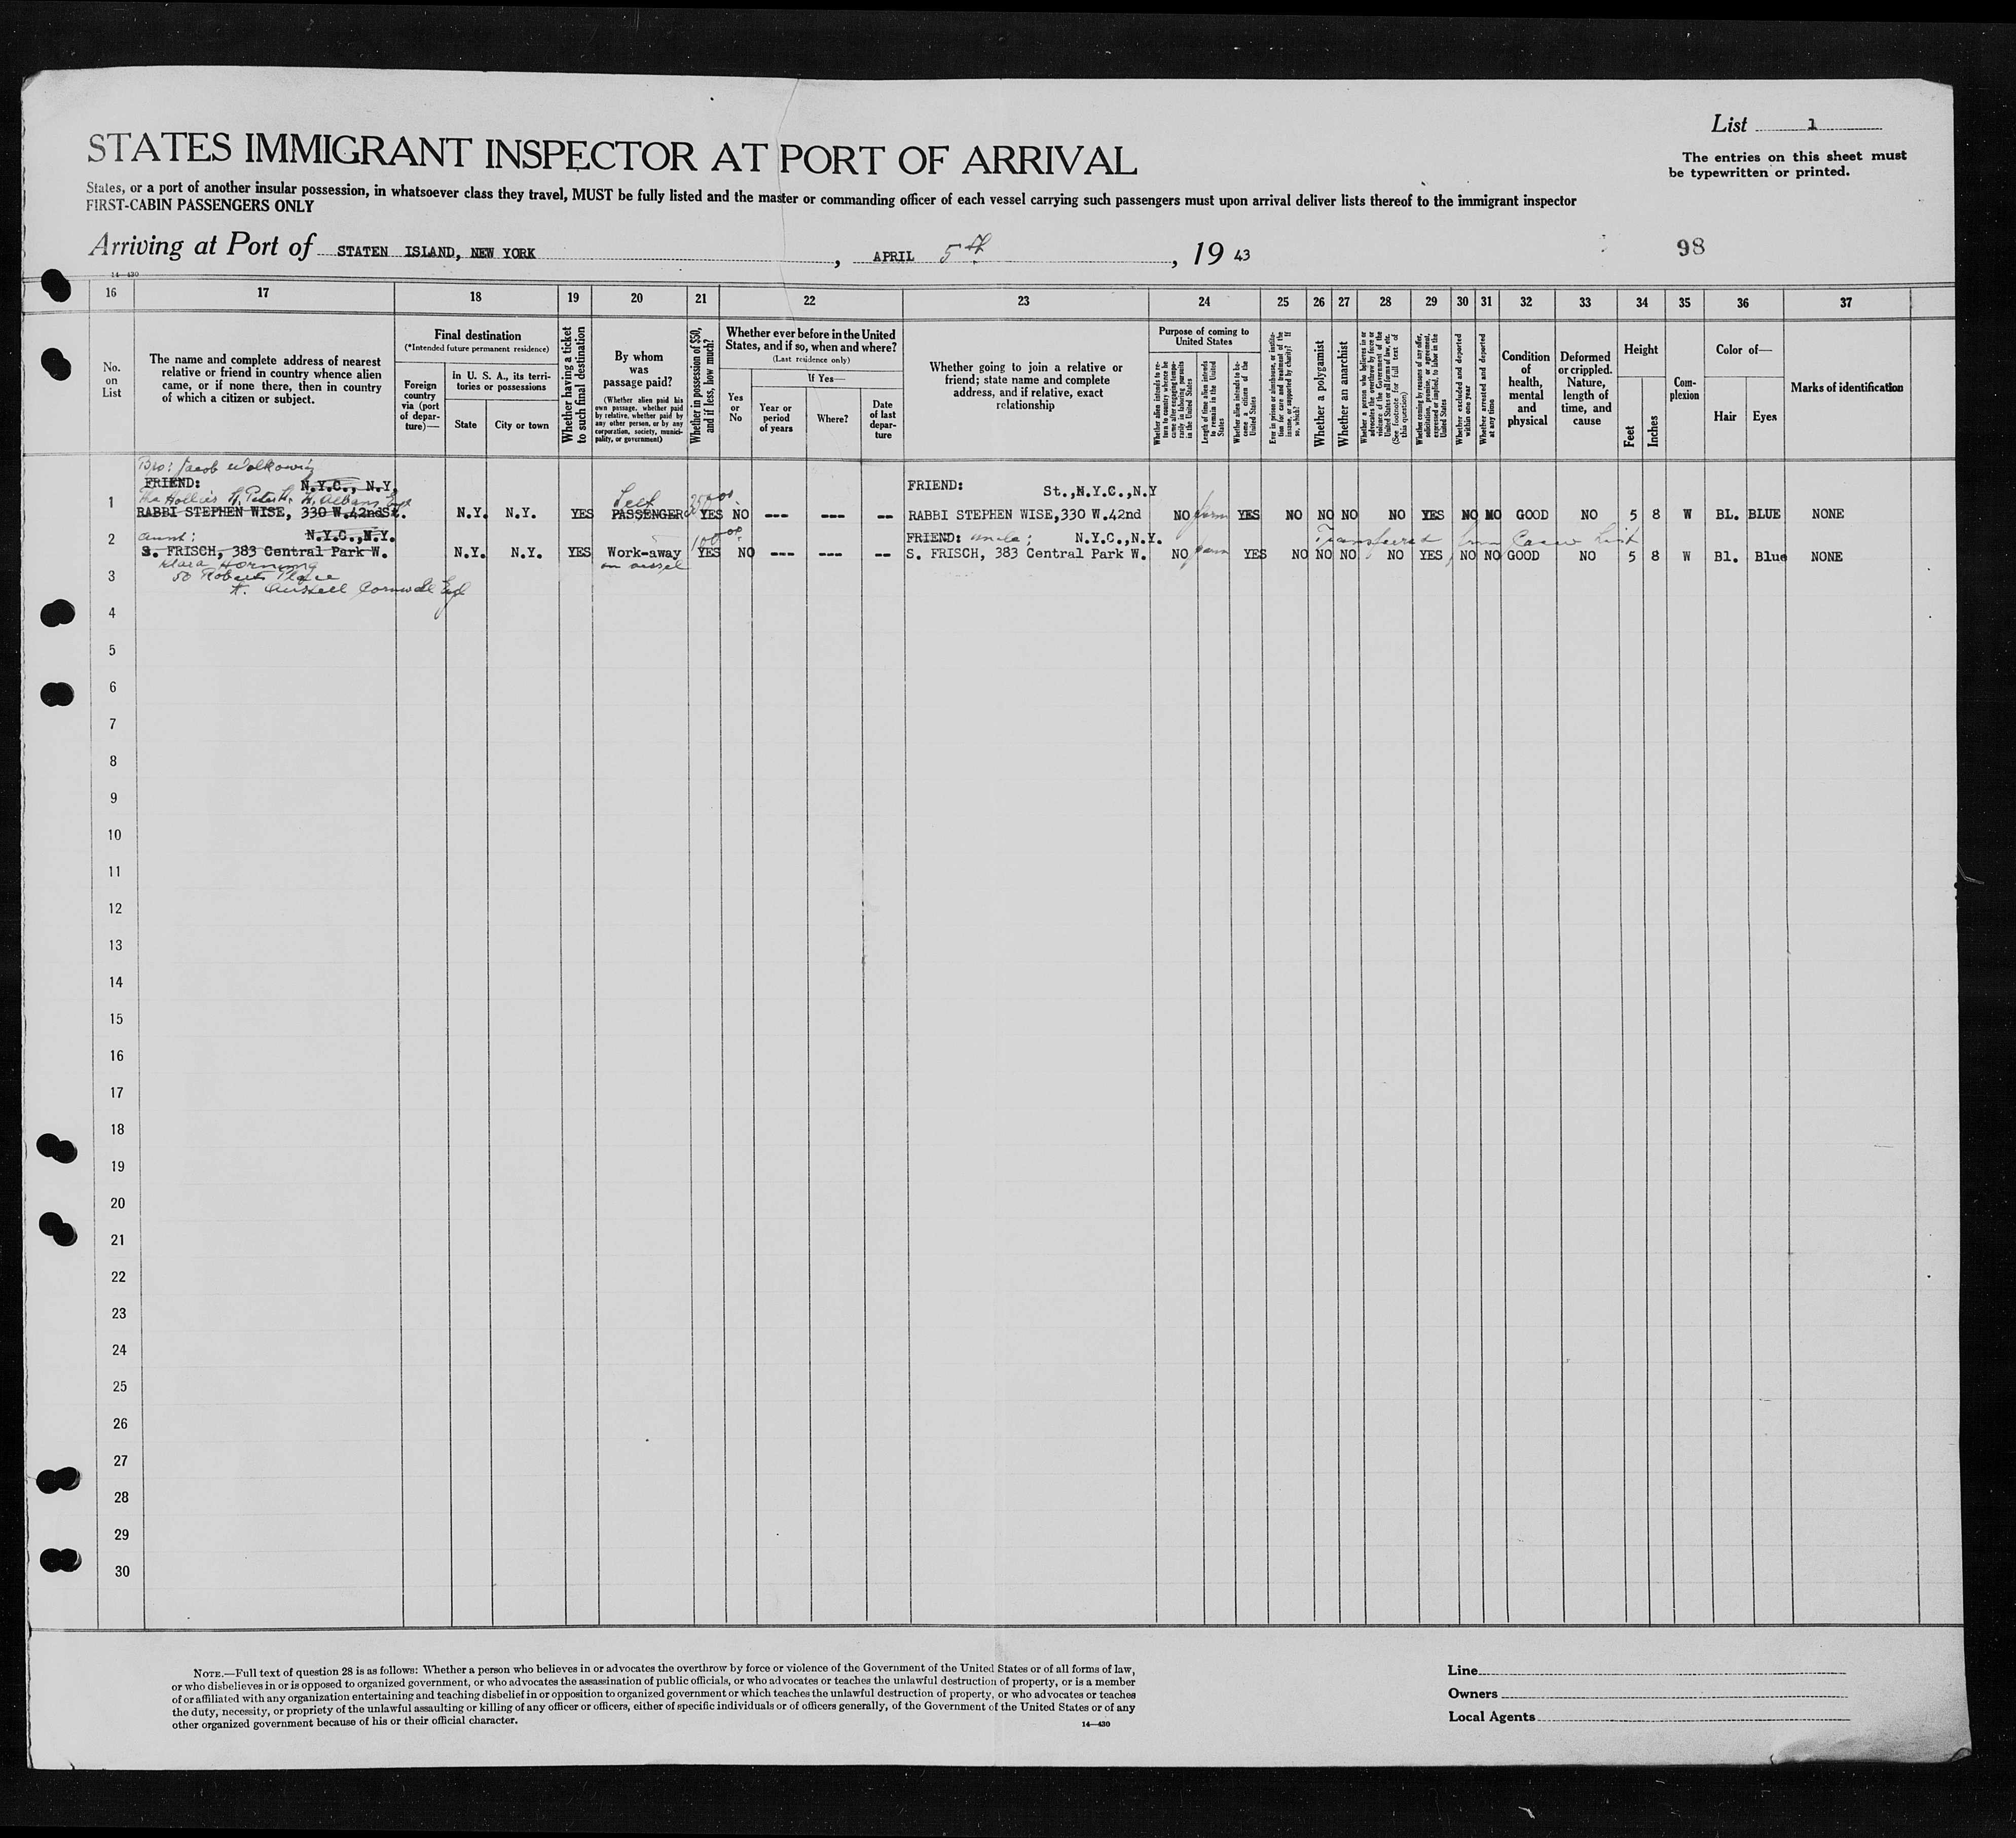 List 1
The entries on this sheet must
be typewritten or printed.
STATES IMMIGRANT INSPECTOR AT PORT OF ARRIVAL
States, or a port of another insular possession, in whatsoever class they travel, MUST be fully listed and the master or commanding officer of each vessel carrying such passengers must upon arrival deliver lists thereof to the immigrant inspector
FIRST-CABIN PASSENGERS ONLY
Arriving at Port of STATEN ISLAND, NEW YORK, APRIL 5th, 19 43
98
14—430
16 17 18 19 20 21 22 23 24 25 26 27 28 29 30 31 32 33 34 35 36 37
No.
on
List
The name and complete address of nearest
relative or friend in country whence alien
came, or if none there, then in country
of which a citizen or subject.
Final destination
(*Intended future permanent residence)
Foreign
country
via (port
of depar-
ture)—
In U. S. A., its terri-
tories or possessions
State
City or town
Whether having a ticket
to such final destination
By whom
was
passage paid?
(Whether alien paid his
own passage, whether paid
by relative, whether paid by
any other person, or by any
corporation, society, munici-
pality, or government)
Whether in possession of $50,
and if less, how much?
Whether ever before in the United
States, and if so, when and where?
(Last residence only)
Yes
or
No
If Yes—
Year or
period
of years
Where?
Date
of last
depar-
ture
Whether going to join a relative or
friend; state name and complete
address, and if relative, exact
relationship
Purpose of coming to
United States
Whether alien intends to re-
turn to country whence he
came after engaging tempo-
rarily in laboring pursuits
in the United States
Length of time alien intends
to remain in the United
States
Whether alien intends to be-
come a citizen of the
United States
Ever in prison or almshouse, or institu-
tion for care and treatment of the
insane, or supported by charity? If
so, which?
Whether a polygamist
Whether an anarchist
Whether a person who believes in or
advocates the overthrow by force or
violence of the Government of the
United States or all forms of law, etc.
(See footnote for full text of
this question)
Whether coming by reasons of any offer,
solicitation, promise, or agreement,
expressed or implied, to labor in the
United States
Whether excluded and deported
within one year
Whether arrested and deported
at any time
Condition
of
health,
mental
and
physical
Deformed
or crippled.
Nature,
length of
time, and
cause
Height
Feet
Inches
Com-
plexion
Color of—
Hair
Eyes
Marks of identification
Bro: Jacob
FRIEND: N.Y.C., N.Y.
The Hollies St. Peter St. St. Albans Eng
1 RABBI STEPHEN WISE, 330 W.42ndSt. N.Y. N.Y. YES Self PASSENGER YES NO --- --- -- FRIEND: St.,N.Y.C.,N.Y
RABBI STEPHEN WISE,330 W.42nd NO perm YES NO NO NO NO YES NO NO GOOD NO 5 8 W BL. BLUE NONE
2 aunt: N.Y.C.,N.Y.
S. FRISCH, 383 Central Park W. N.Y. N.Y. YES Work-away on vessel 100 00 YES NO --- --- -- FRIEND: uncle: N.Y.C.,N.Y.
S. FRISCH, 383 Central Park W. NO perm YES NO NO NO NO YES NO NO GOOD NO 5 8 W Bl. Blue NONE
Transferred from Crew List
Klara Hornung
3 50 Robarts Place
St. Austell Cornwall Eng
4
5
6
7
8
9
10
11
12
13
14
15
16
17
18
19
20
21
22
23
24
25
26
27
28
29
30
NOTE.—Full text of question 28 is as follows: Whether a person who believes in or advocates the overthrow by force or violence of the Government of the United States or of all forms of law,
or who disbelieves in or is opposed to organized government, or who advocates the assassination of public officials, or who advocates or teaches the unlawful destruction of property, or is a member
of or affiliated with any organization entertaining and teaching disbelief in or opposition to organized government or which teaches the unlawful destruction of property, or who advocates or teaches
the duty, necessity, or propriety of the unlawful assaulting or killing of any officer or officers, either of specific individuals or of officers generally, of the Government of the United States or of any
other organized government because of his or their official character.
14—430
Line
Owners
Local Agents